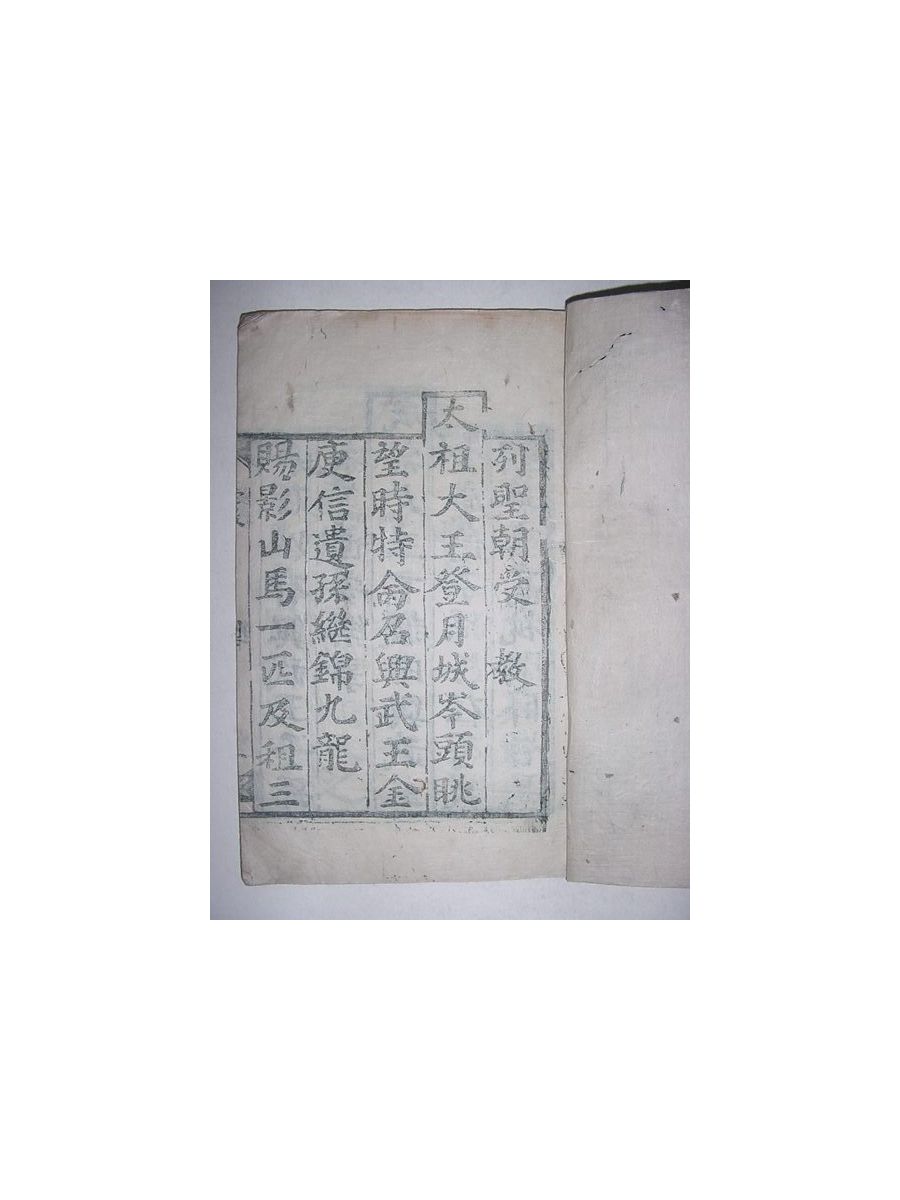 列聖朝受教
太祖大王登月城岑頭眺
望時特命召興武王金
庾信遺孫繼錦九龍
賜影山馬一匹及租三